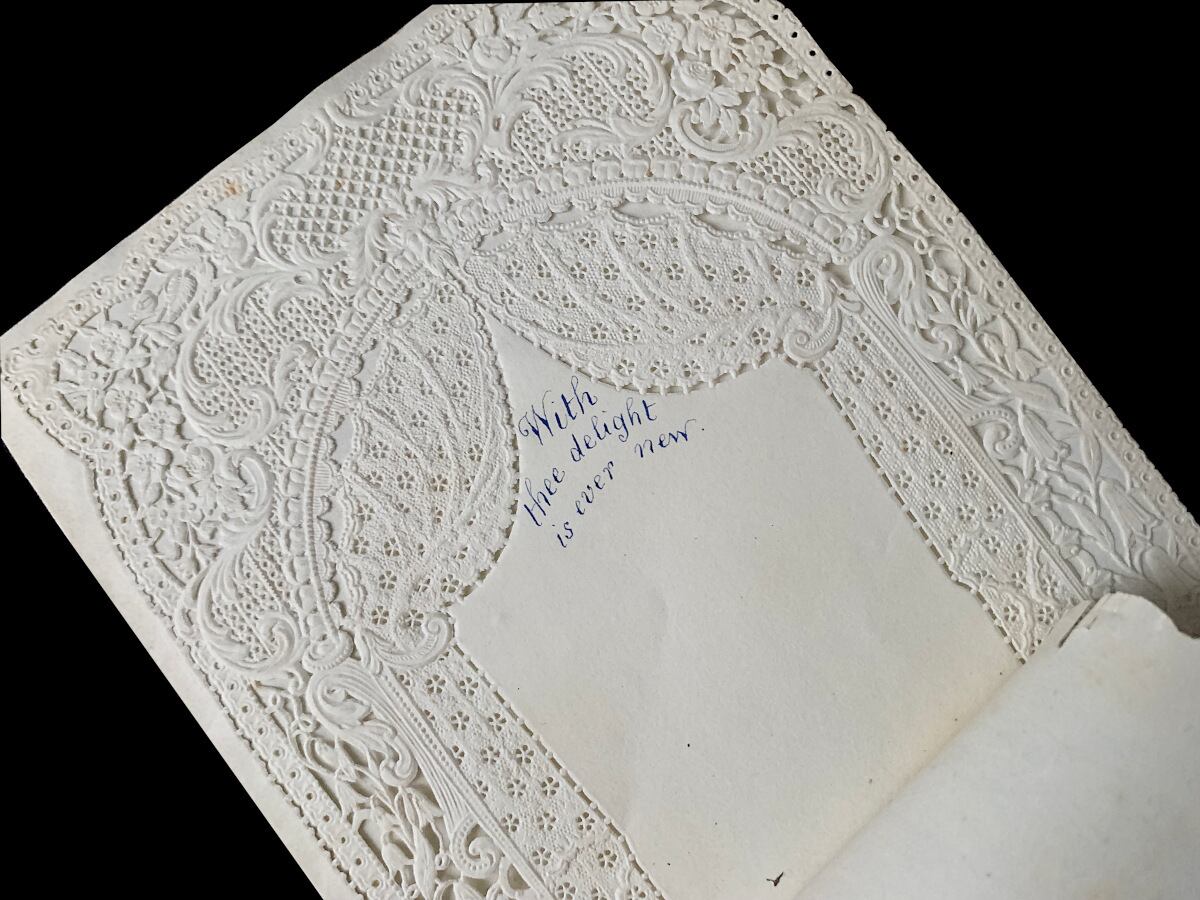 With
thee delight
is ever new.